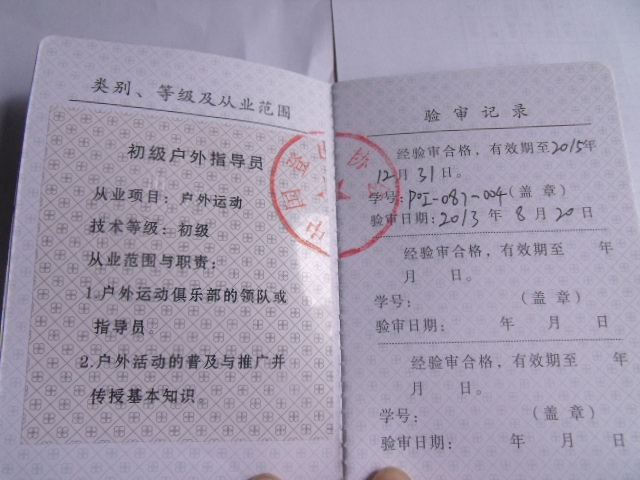 类别、等级及从业范围
初级户外指导员
从业项目：户外运动
技术等级：初级
从业范围与职责：
1.户外运动俱乐部的领队或
指导员。
2.户外活动的普及与推广并
传授基本知识。
验审记录
经验审合格，有效期至2015年
12月31日。
学号：POI-087-004（盖 章）
验审日期：2013年8月20日
经验审合格，有效期至 年
月 日。
学号： （盖 章）
验审日期： 年 月 日
经验审合格，有效期至 年
月 日。
学号： （盖 章）
验审日期： 年 月 日